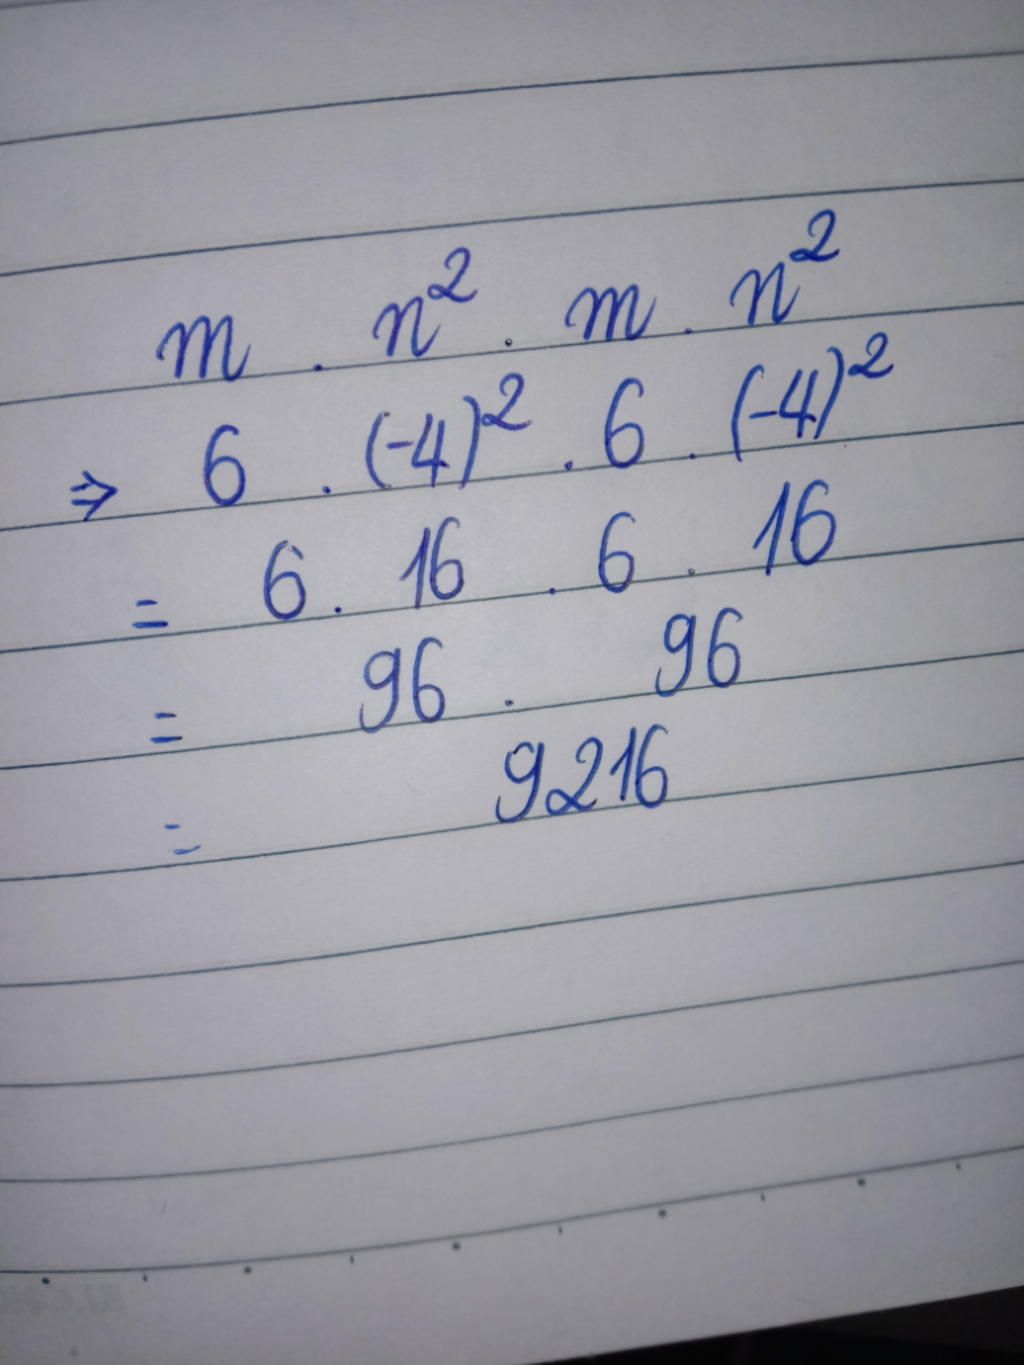 m . n² . m . n²
⇒ 6 . (-4)² . 6 . (-4)²
= 6 . 16 . 6 . 16
= 96 . 96
= 9216